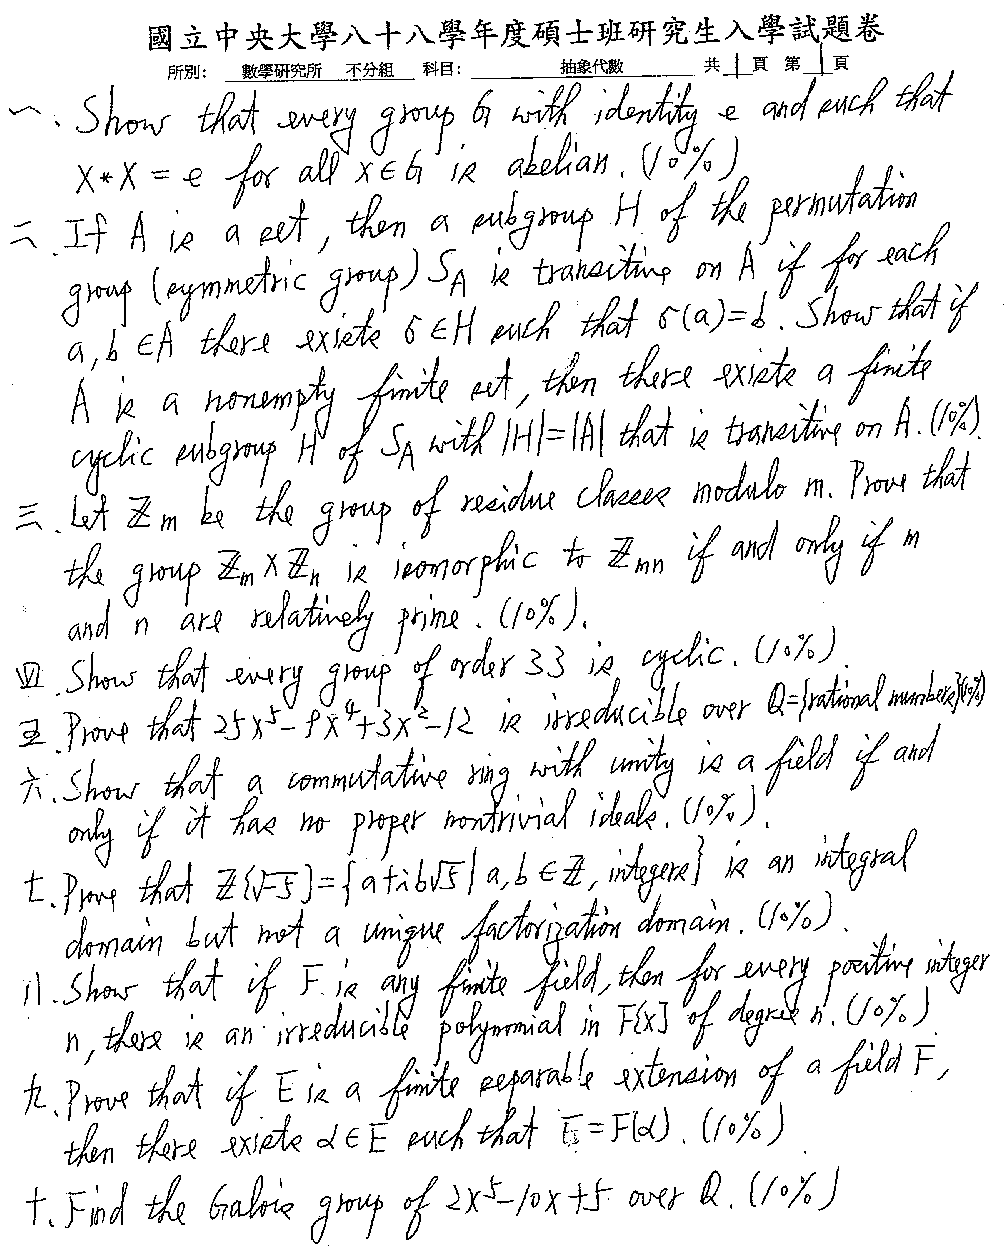 國立中央大學八十八學年度碩士班研究生入學試題卷
所別: 數學研究所 不分組 科目: 抽象代數 共 1 頁 第 1 頁
一、Show that every group G with identity e and such that
x*x = e for all x∈G is abelian. (10%)
二、If A is a set, then a subgroup H of the permutation
group (symmetric group) S_A is transitive on A if for each
a, b ∈ A there exists σ ∈ H such that σ(a)=b. Show that if
A is a nonempty finite set, then there exists a finite
cyclic subgroup H of S_A with |H|=|A| that is transitive on A. (10%).
三、Let ℤm be the group of residue classes modulo m. Prove that
the group ℤm × ℤn is isomorphic to ℤmn if and only if m
and n are relatively prime. (10%).
四、Show that every group of order 33 is cyclic. (10%).
五、Prove that 25x⁵-9x⁴+3x²-12 is irreducible over Q={rational numbers}(10%)
六、Show that a commutative ring with unity is a field if and
only if it has no proper nontrivial ideals. (10%).
七、Prove that ℤ[√-5]={a+ib√5 | a, b ∈ ℤ, integers} is an integral
domain but not a unique factorization domain. (10%).
八、Show that if F is any finite field, then for every positive integer
n, there is an irreducible polynomial in F[x] of degree n. (10%)
九、Prove that if E is a finite separable extension of a field F,
then there exists α∈E such that E=F(α). (10%)
十、Find the Galois group of 2x⁵-10x+5 over Q. (10%)